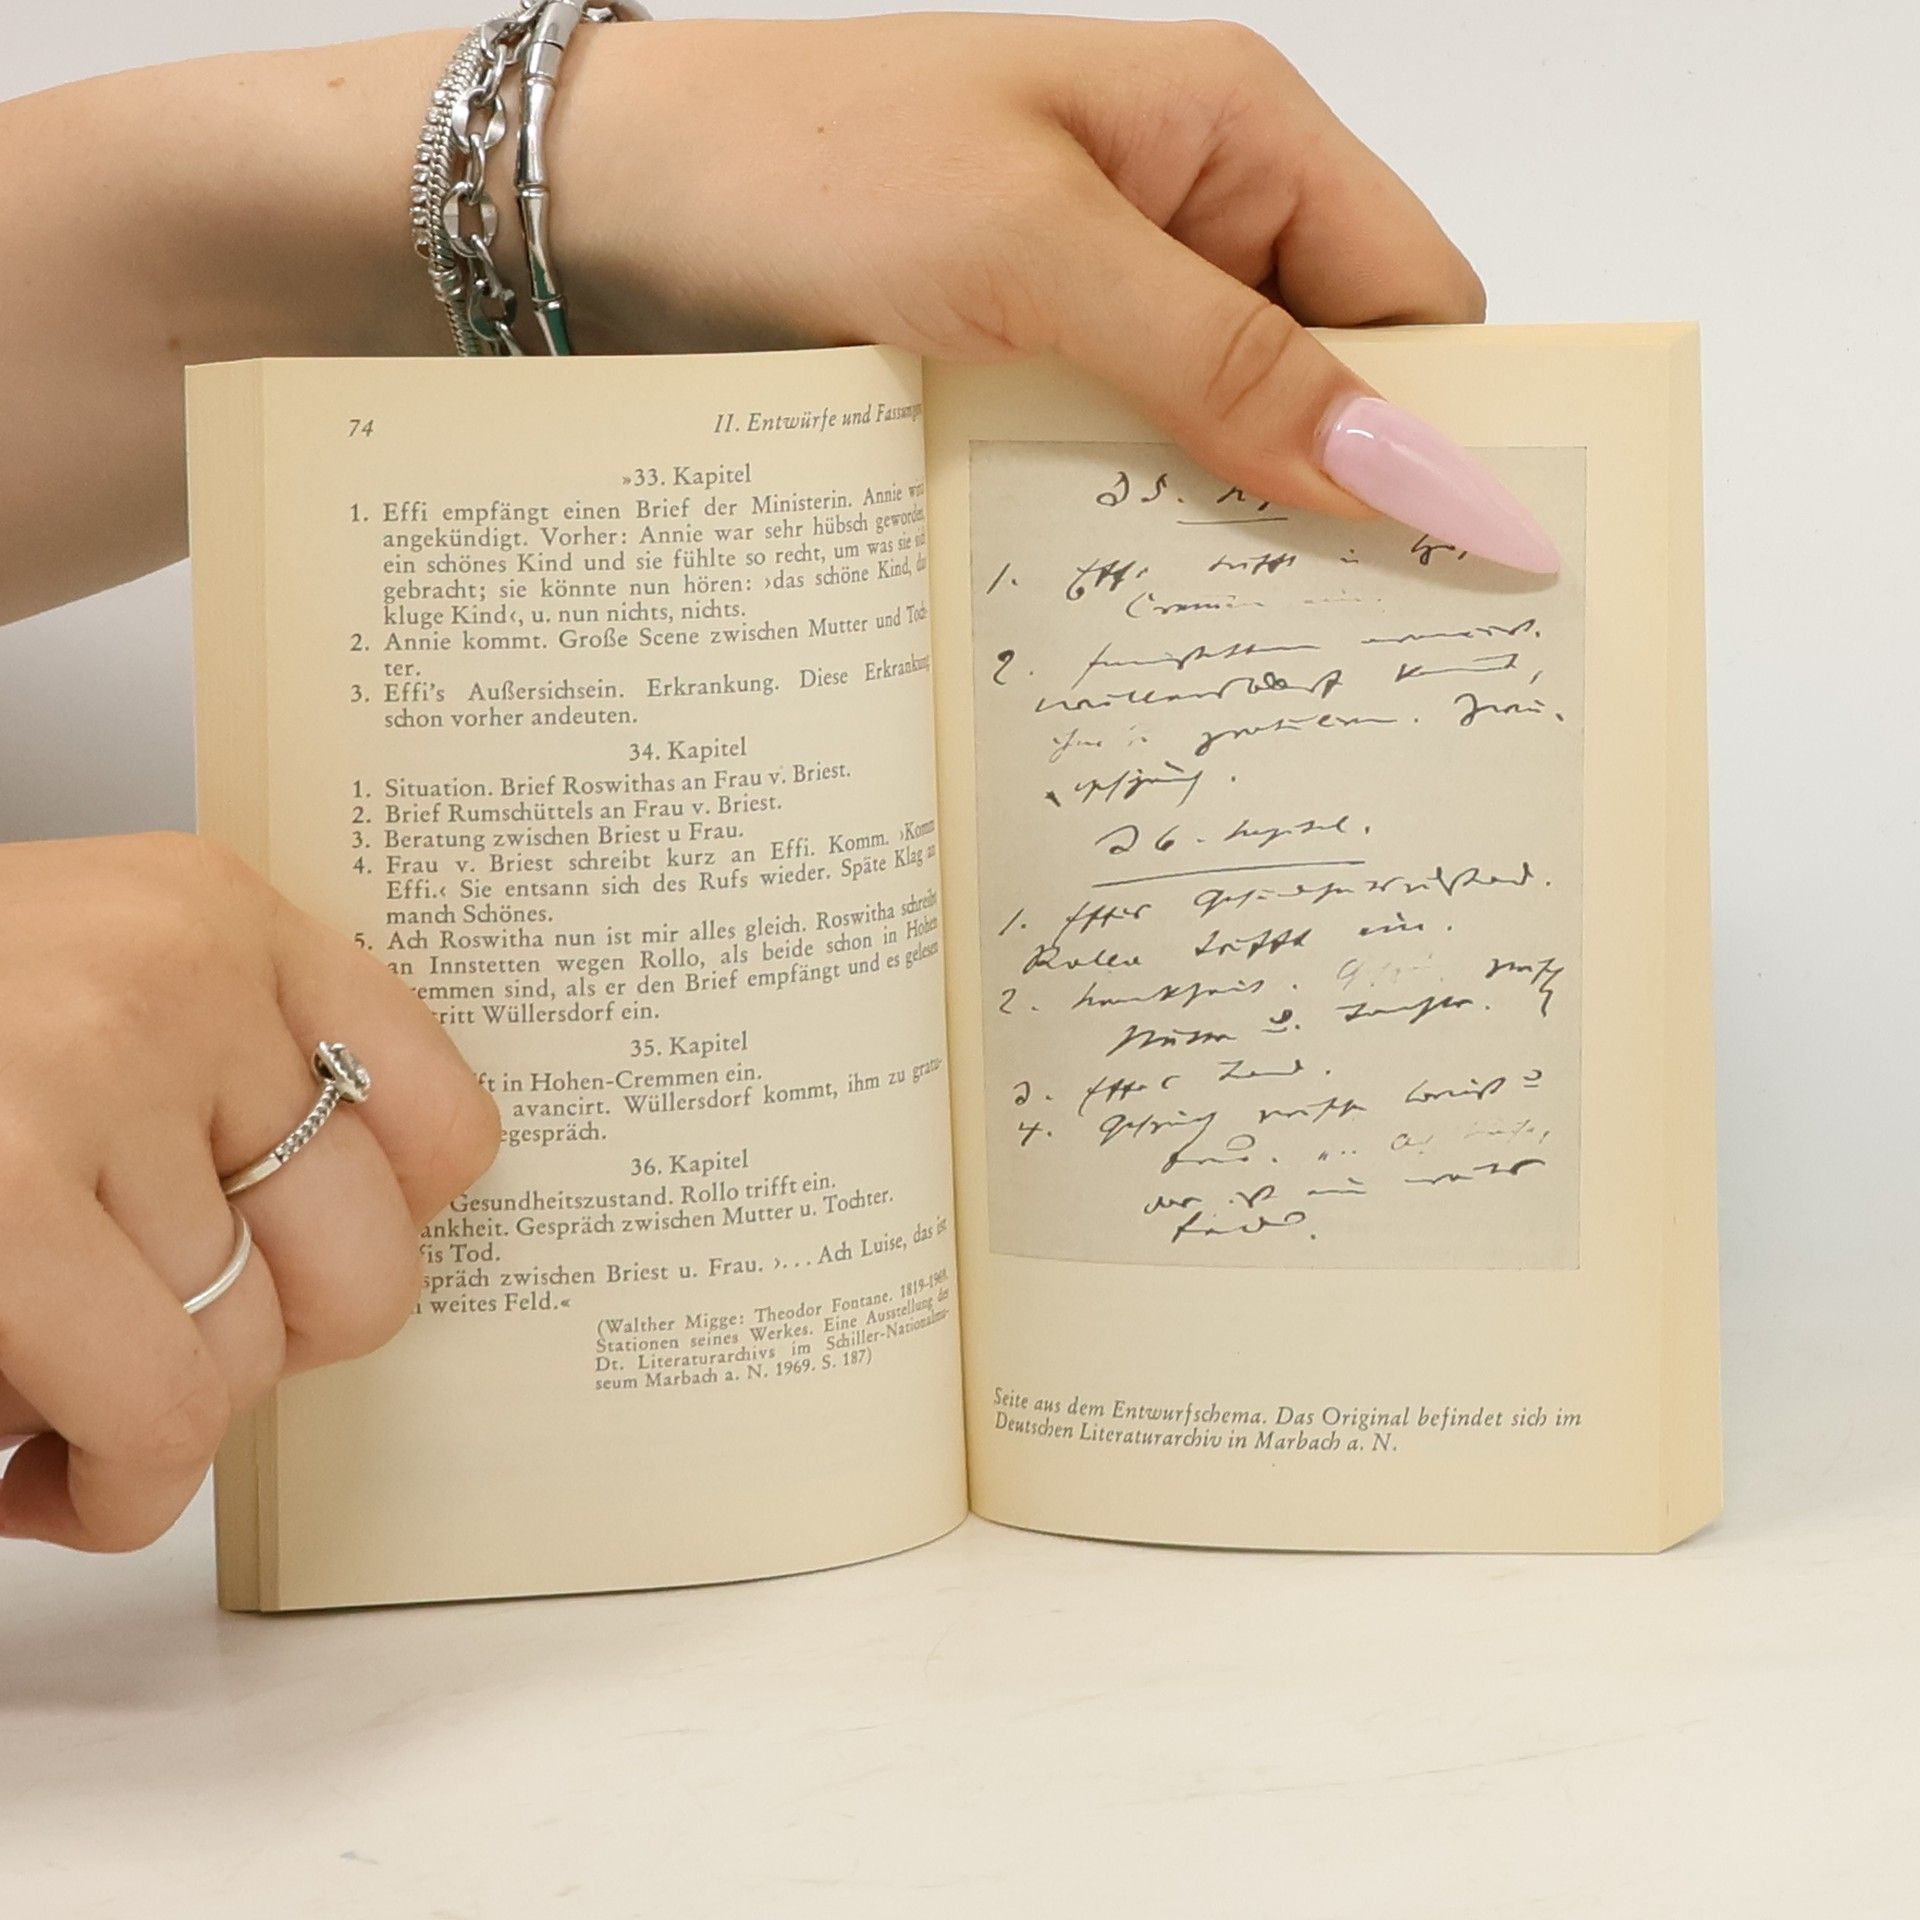 74
II. Entwürfe und Fassungen
»33. Kapitel
1. Effi empfängt einen Brief der Ministerin. Annie wird
angekündigt. Vorher: Annie war sehr hübsch geworden,
ein schönes Kind und sie fühlte so recht, um was sie sich
gebracht; sie könnte nun hören: ›das schöne Kind, das
kluge Kind‹, u. nun nichts, nichts.
2. Annie kommt. Große Scene zwischen Mutter und Toch-
ter.
3. Effi's Außersichsein. Erkrankung. Diese Erkrankung
schon vorher andeuten.
34. Kapitel
1. Situation. Brief Roswithas an Frau v. Briest.
2. Brief Rumschüttels an Frau v. Briest.
3. Beratung zwischen Briest u Frau.
4. Frau v. Briest schreibt kurz an Effi. Komm. ›Komm
Effi.‹ Sie entsann sich des Rufs wieder. Späte Klag an
manch Schönes.
5. Ach Roswitha nun ist mir alles gleich. Roswitha schreibt
an Innstetten wegen Rollo, als beide schon in Hohen
remmen sind, als er den Brief empfängt und es gelesen
tritt Wüllersdorf ein.
35. Kapitel
ft in Hohen-Cremmen ein.
avancirt. Wüllersdorf kommt, ihm zu gratu-
egespräch.
36. Kapitel
Gesundheitszustand. Rollo trifft ein.
ankheit. Gespräch zwischen Mutter u. Tochter.
fis Tod.
spräch zwischen Briest u. Frau. ›... Ach Luise, das ist
weites Feld.«
(Walther Migge: Theodor Fontane. 1819–1969.
Stationen seines Werkes. Eine Ausstellung des
Dt. Literaturarchivs im Schiller-Nationalmu-
seum Marbach a. N. 1969. S. 187)
1. Effi trifft in
2.
36. Kapitel.
1. Effis Gesundheitszustand.
Rollo trifft ein.
2. Krankheit.
Mutter u. Tochter.
3. Effis Tod.
4. Gespräch zwischen Briest u
Frau.
das ist ein weites
Feld.
Seite aus dem Entwurfschema. Das Original befindet sich im
Deutschen Literaturarchiv in Marbach a. N.